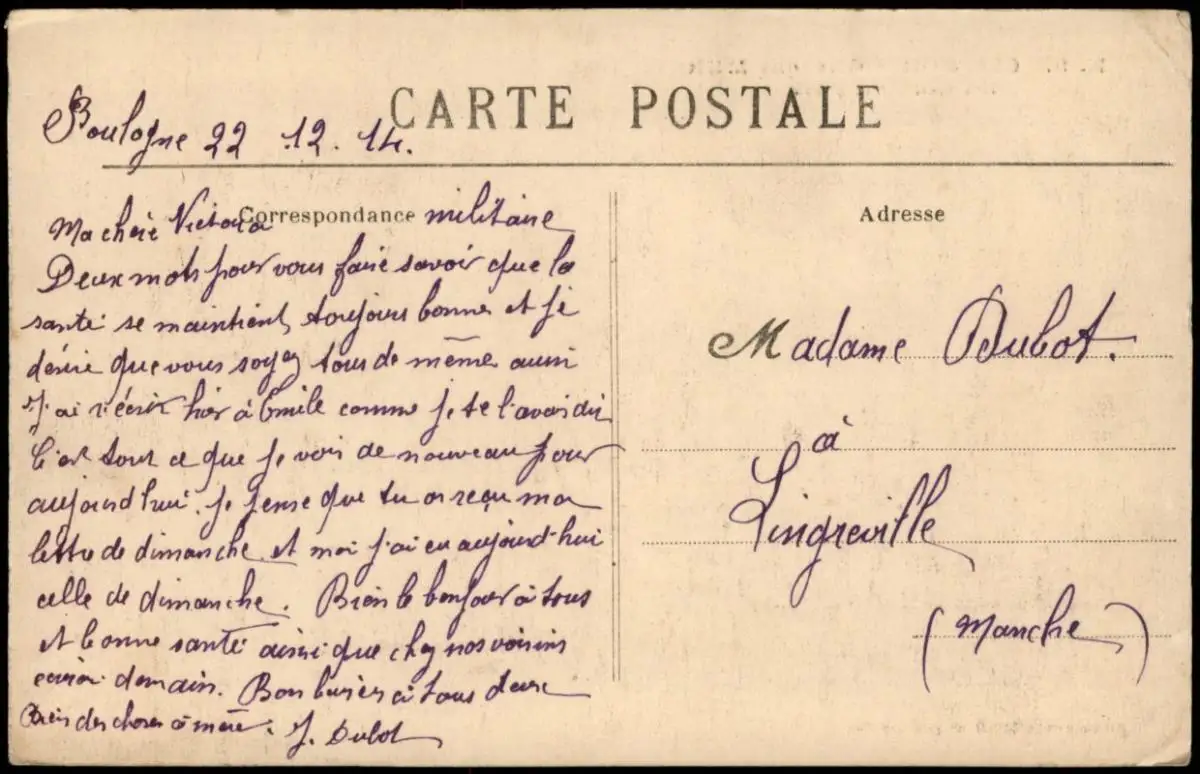 CARTE POSTALE
Boulogne 22.12.14.
Correspondance militaire
Ma chère Victoria
Deux mots pour vous faire savoir que la
santé se maintient toujours bonne et je
désire que vous soyez tous de même aussi
J'ai réécrit hier à Emile comme je te l'avais dit
C'est tout ce que je vois de nouveau pour
aujourd'hui. Je pense que tu as reçu ma
lettre de dimanche et moi j'ai eu aujourd'hui
celle de dimanche. Bien le bonjour à tous
et bonne santé ainsi que chez nos voisins
demain. Bon baisers à tous deux
Bien des choses à mère. J. Dubot
Adresse
Madame Dubot.
à
Lingreville
(Manche)